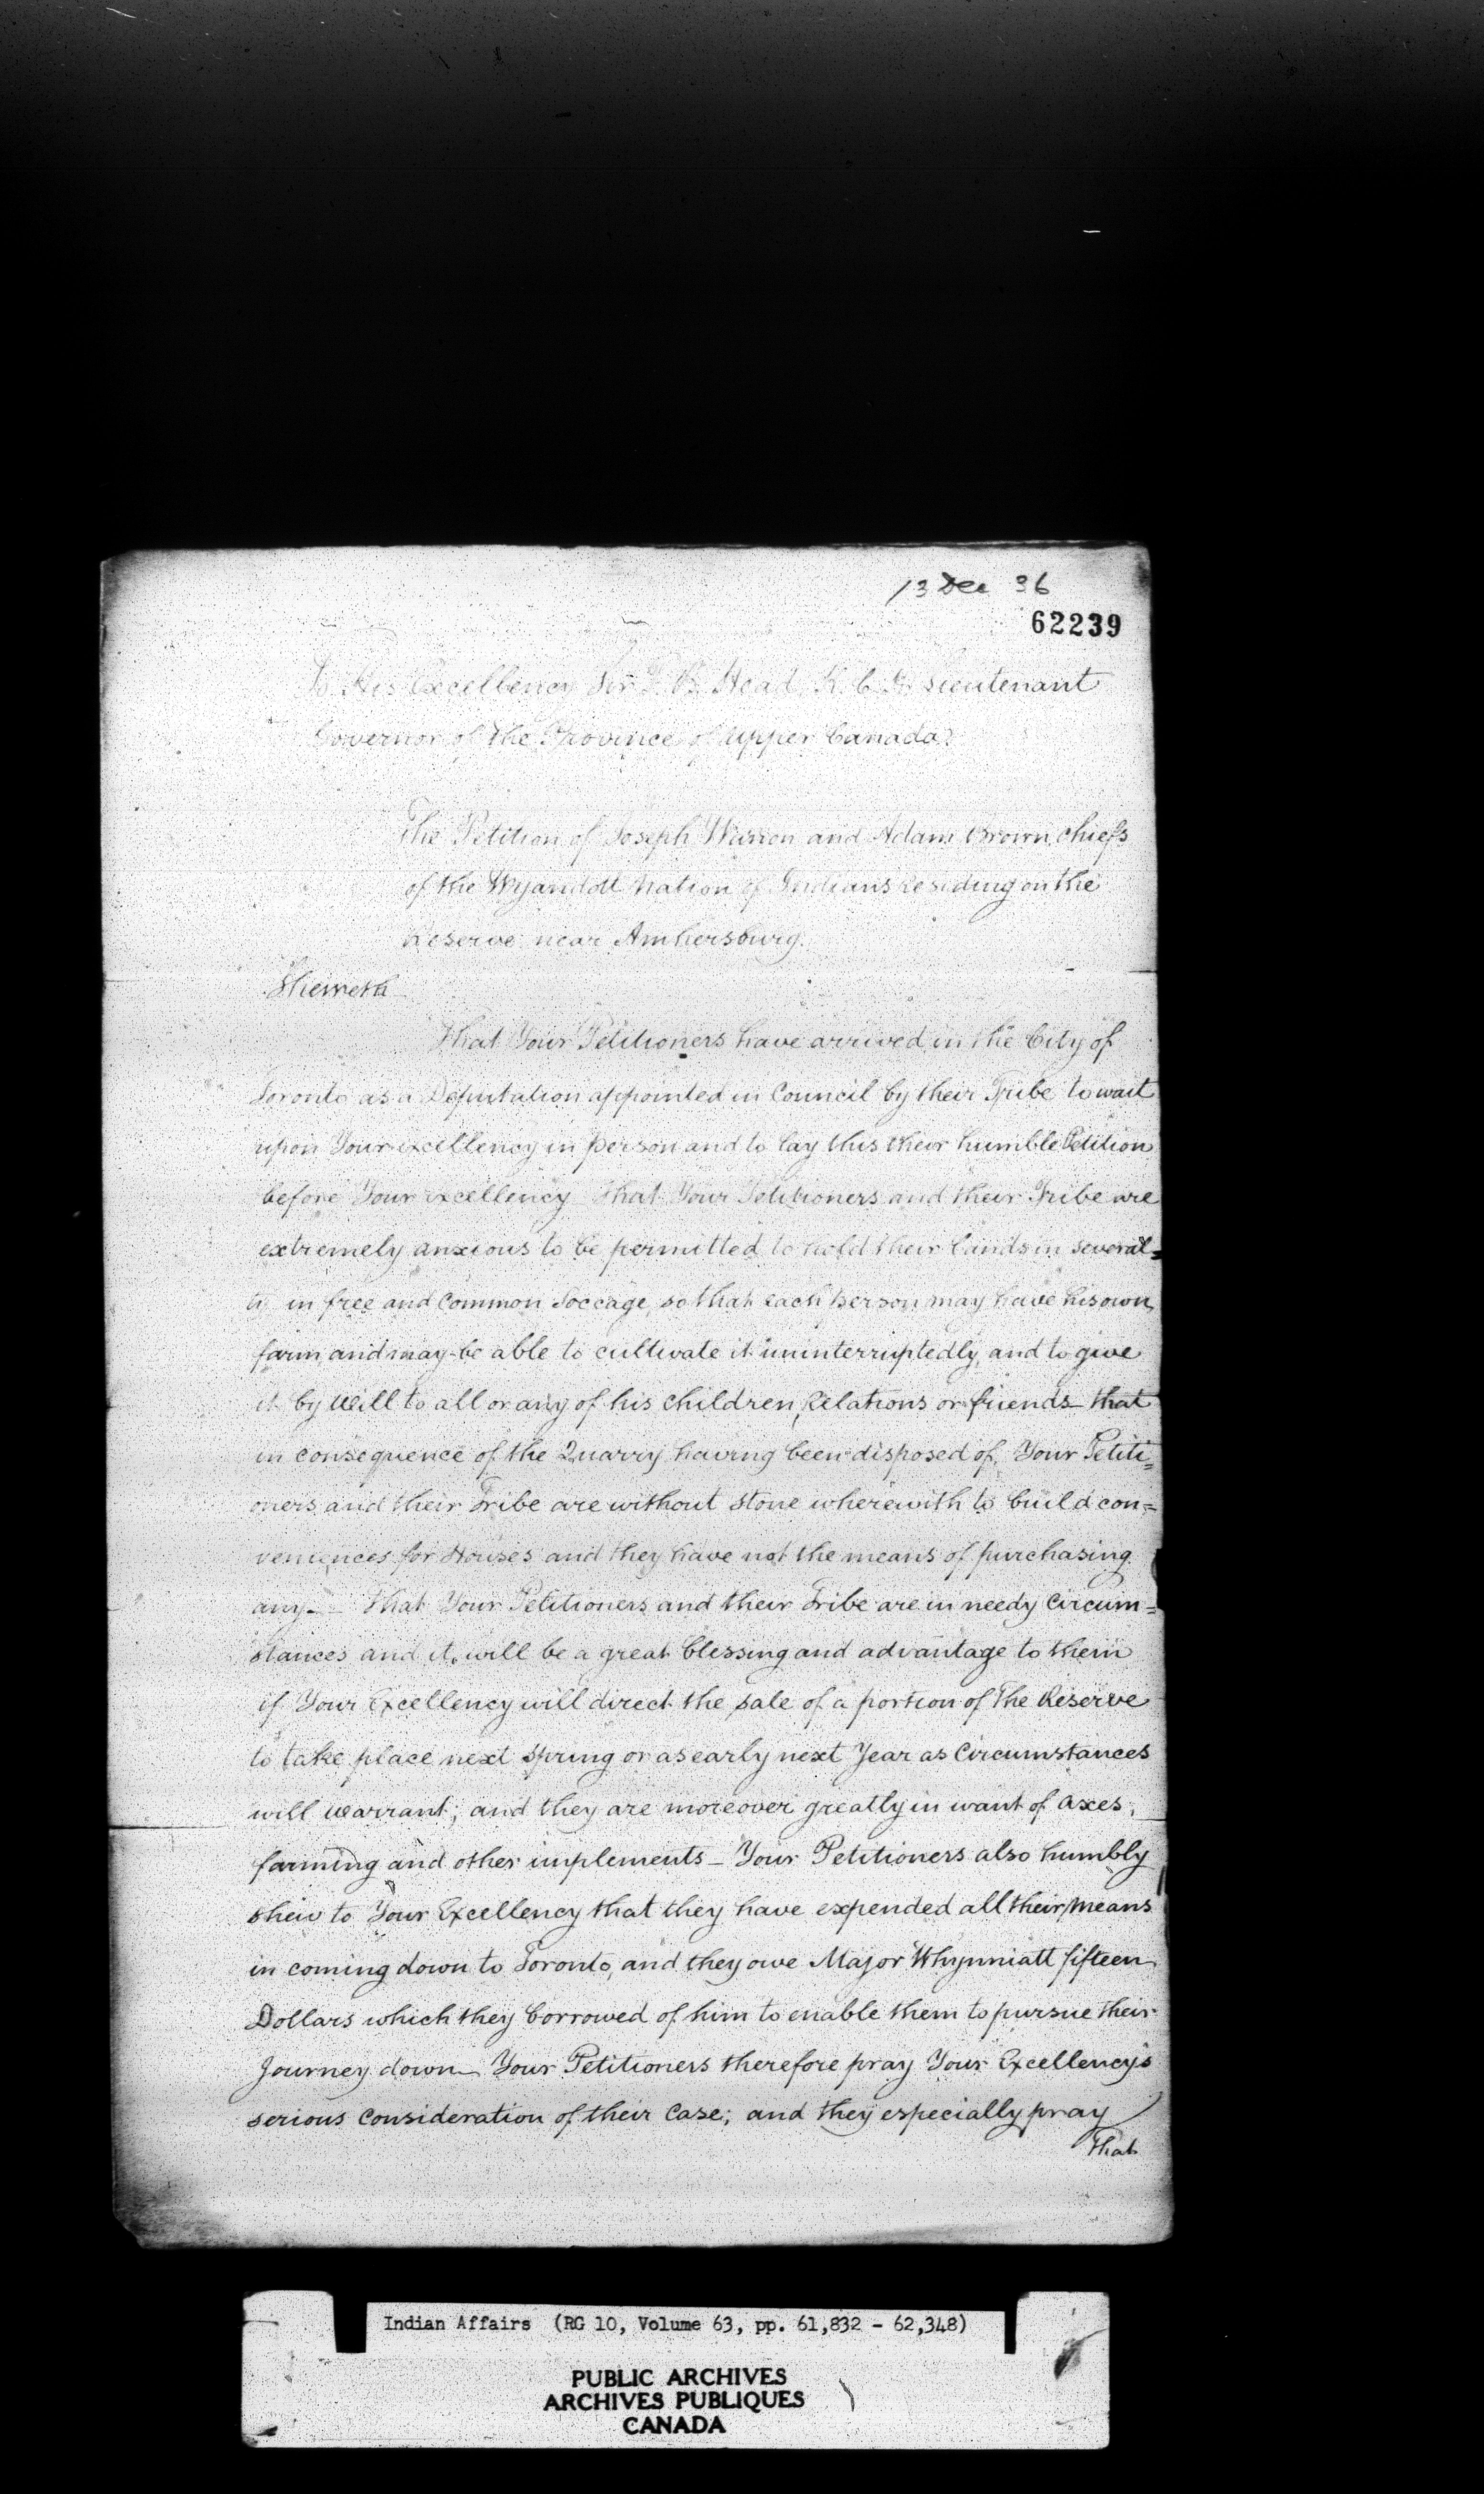 13 Dec 36
62239
To His Excellency Sir F. B. Head K. C. H. Lieutenant
Governor of the Province of Upper Canada
The Petition of Joseph Warron and Adam Brown, chiefs
of the Wyandott Nation of Indians residing on the
Reserve near Amhersburg.
Sheweth
That Your Petitioners have arrived in the City of
Toronto as a Deputation appointed in Council by their Tribe to wait
upon Your excellency in person and to lay this their humble Petition
before Your excellency That Your Petitioners and their Tribe are
extremely anxious to be permitted to hold their lands in several=
ty in free and Common Soccage, so that each person may have his own
farm and may be able to cultivate it uninterruptedly, and to give
it by Will to all or any of his children, Relations or friends_ that
in consequence of the Quarry having been disposed of, Your Petiti=
oners and their Tribe are without Stone wherewith to build con=
veniences for Houses and they have not the means of purchasing
any._ That Your Petitioners and their Tribe are in needy Circum=
stances and it will be a great blessing and advantage to them
if Your Excellency will direct the sale of a portion of The Reserve
to take place next Spring or as early next Year as Circumstances
will warrant; and they are moreover greatly in want of axes,
farming and other implements_ Your Petitioners also humbly
shew to Your Excellency that they have expended all their means
in coming down to Toronto, and they owe Major Whynniatt fifteen
Dollars which they borrowed of him to enable them to pursue their
Journey down_ Your Petitioners therefore pray Your Excellency's
serious Consideration of their Case; and they especially pray
That
Indian Affairs (RG 10, Volume 63, pp. 61,832 - 62,348)
PUBLIC ARCHIVES
ARCHIVES PUBLIQUES
CANADA